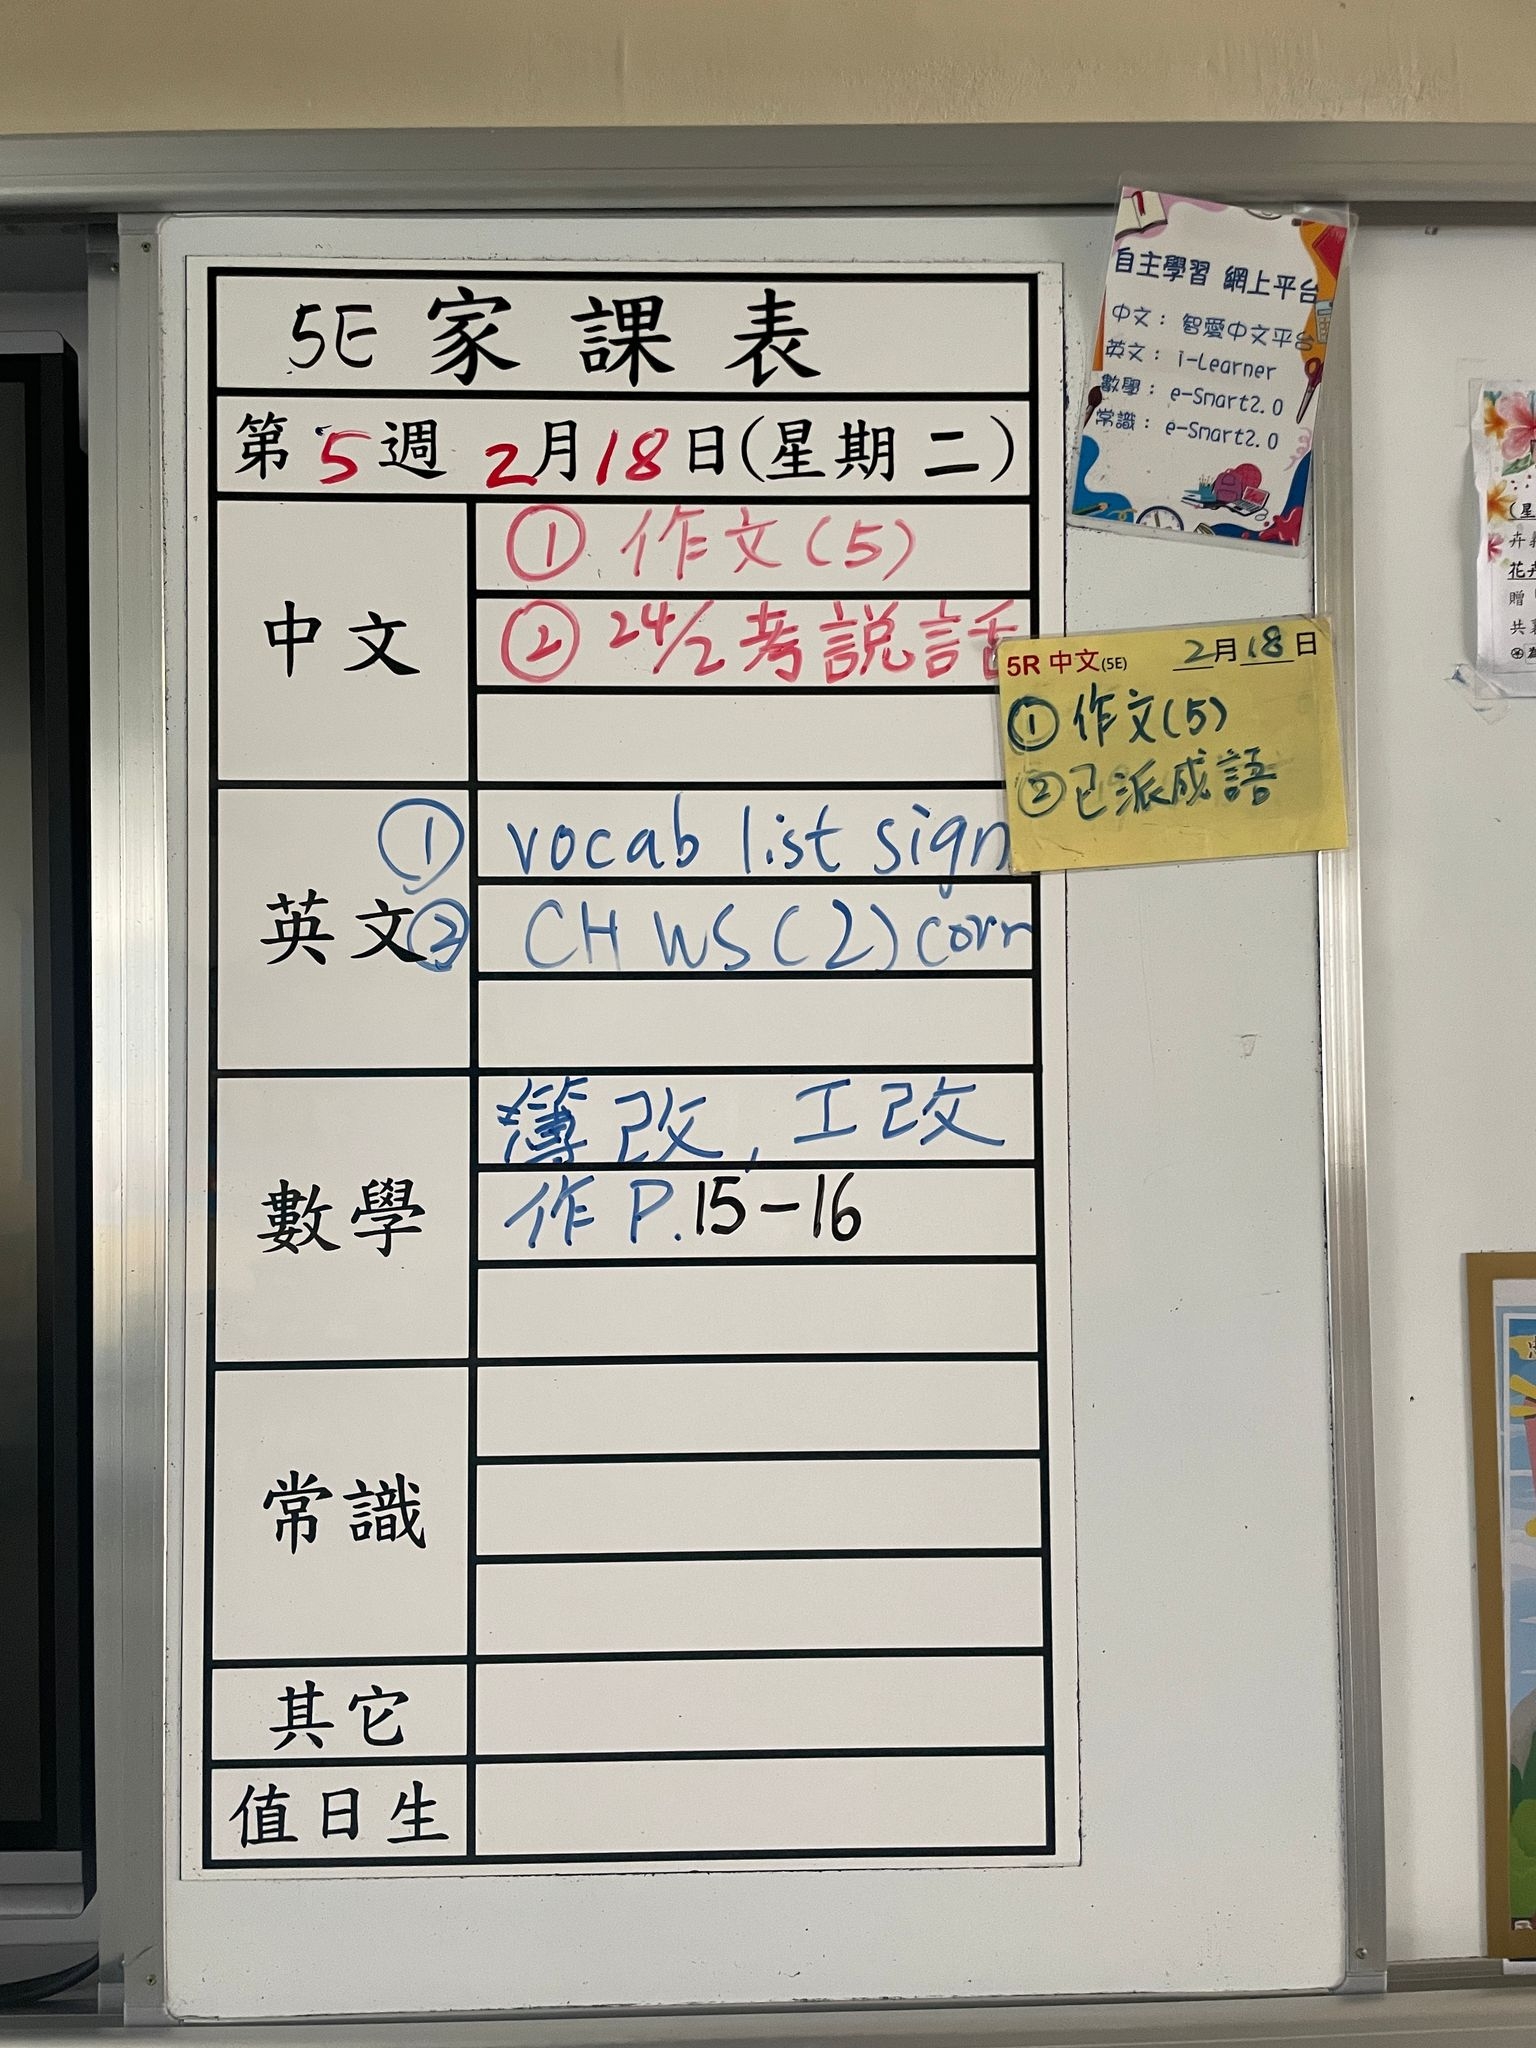 5E 家課表
第5週 2月18日(星期二)
中文
① 作文(5)
② 24/2考説話
英文
① vocab list sign
② CH WS(2)corr
數學
簿改, 工改
作 P.15-16
常識
其它
值日生
自主學習 網上平台
中文： 智愛中文平台
英文： i-Learner
數學： e-Smart2.0
常識： e-Smart2.0
5R 中文(5E) 2月18日
① 作文(5)
② 已派成語
(星
花卉
贈
共